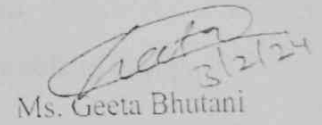 Geeta
3/2/24
Ms. Geeta Bhutani